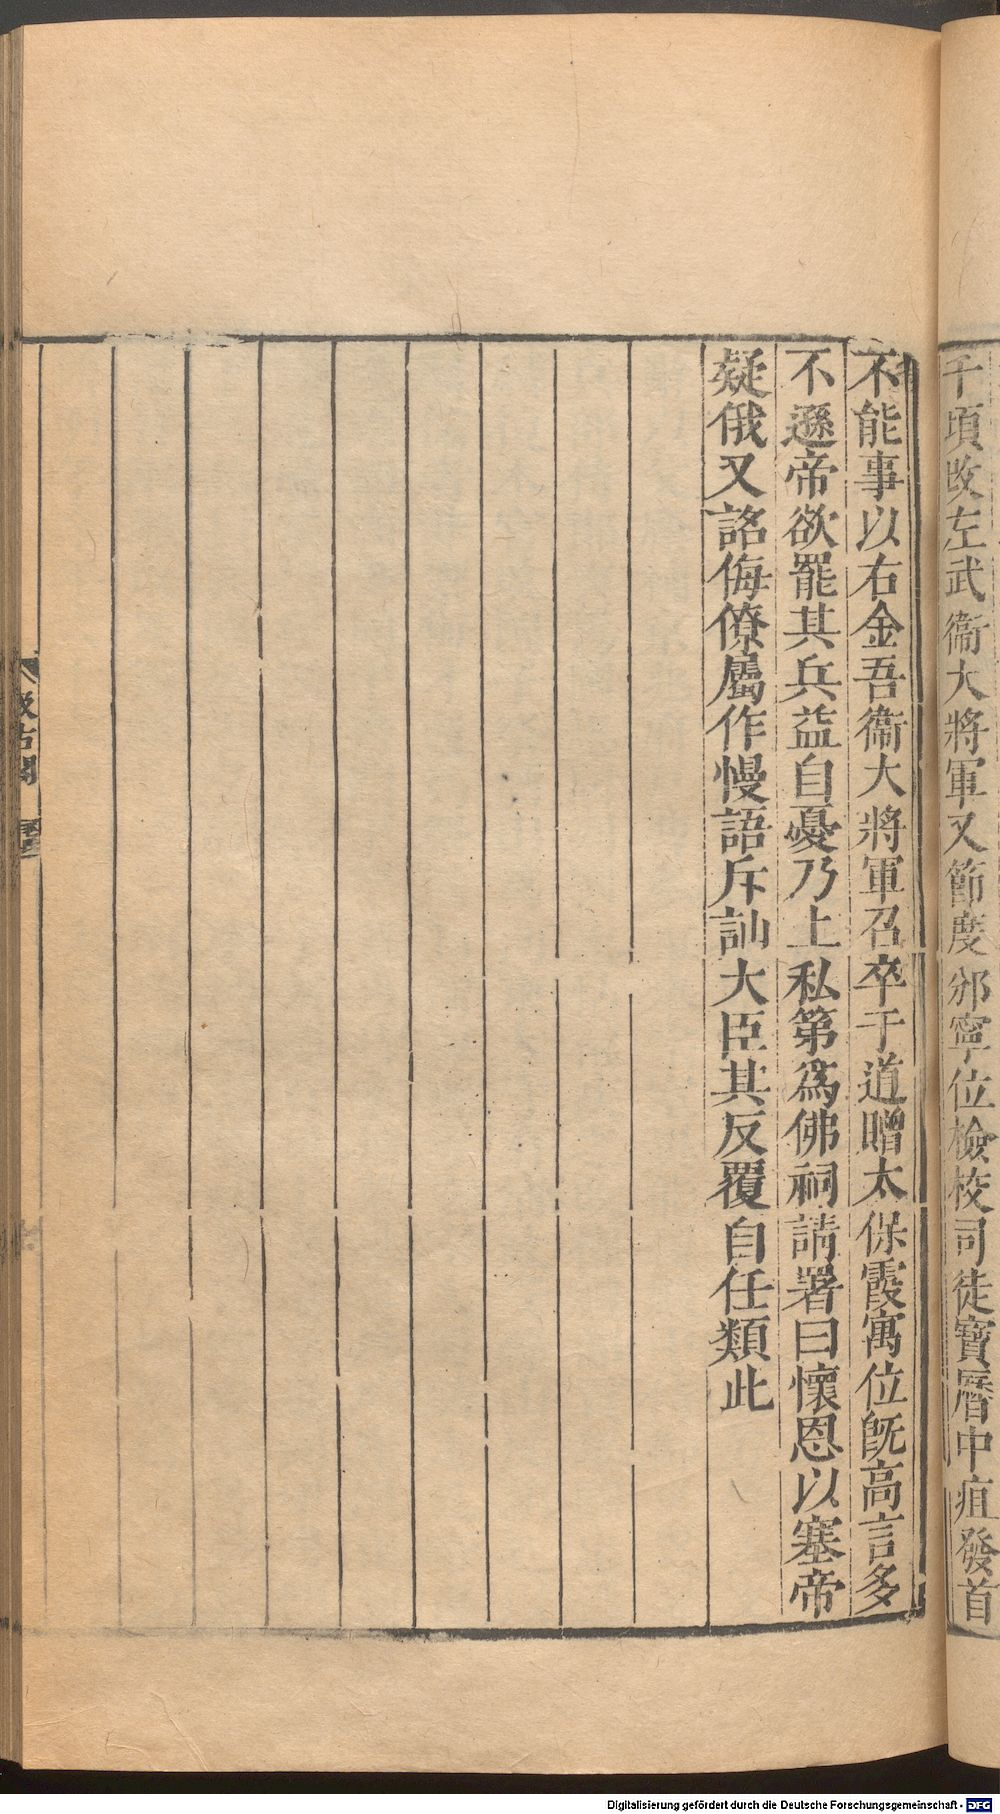 千頃改左武衞大將軍又節度邠寧位檢校司徒寶曆中疽發首
不能事以右金吾衞大將軍召卒于道贈太保霞寓位旣高言多
不遜帝欲罷其兵益自憂乃上私第爲佛祠請署曰懷恩以塞帝
疑俄又詔侮僚屬作慢語斥訕大臣其反覆自任類此
汲古閣
Digitalisierung gefördert durch die Deutsche Forschungsgemeinschaft - DFG